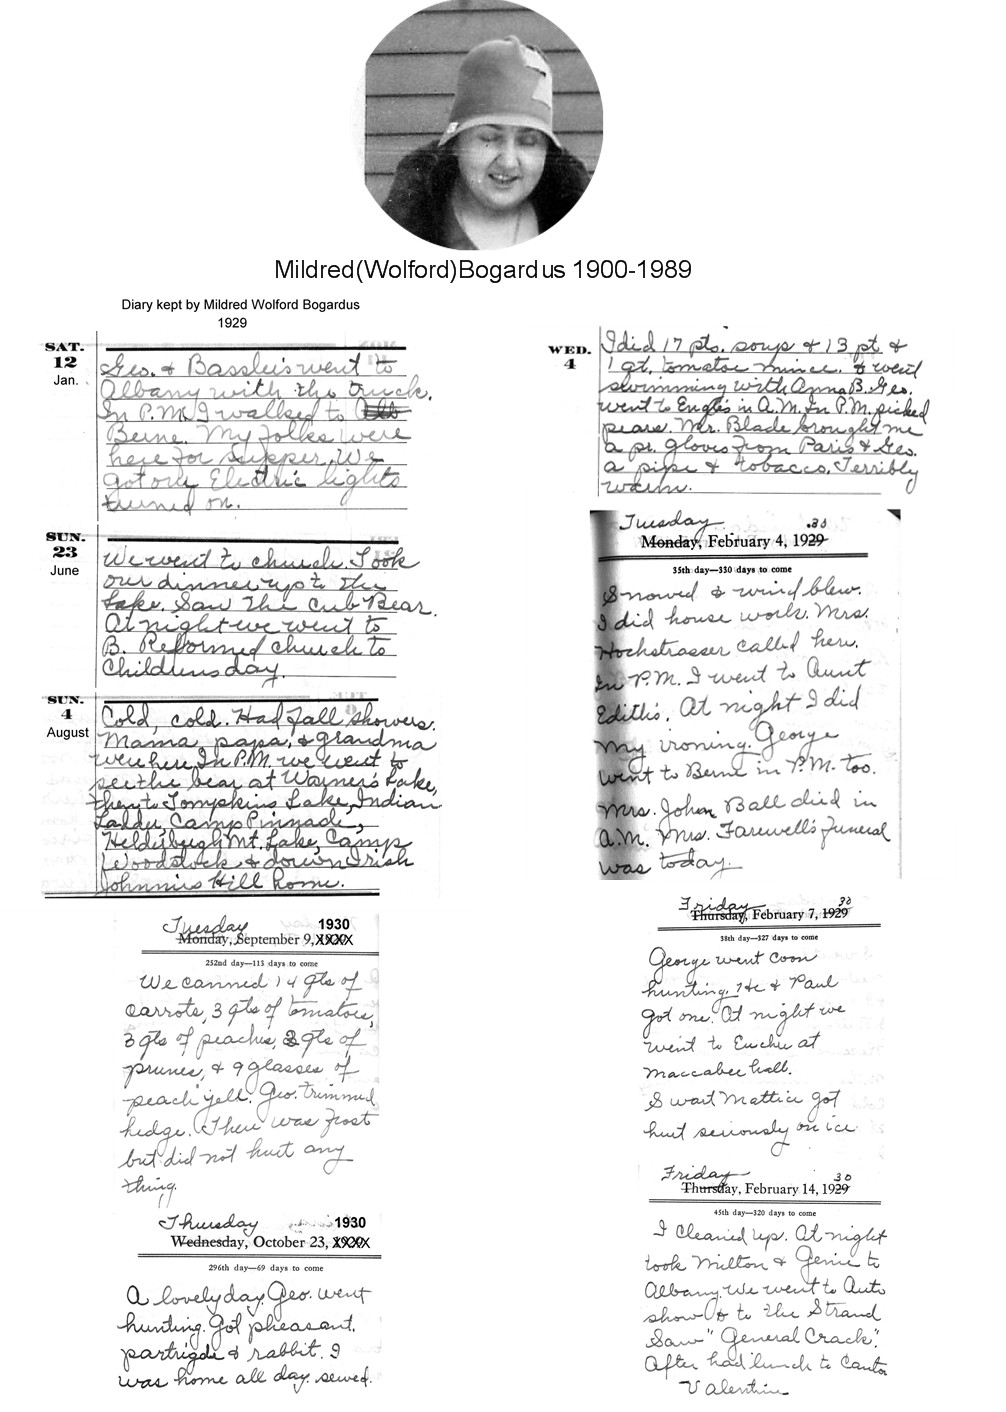 Mildred(Wolford)Bogardus 1900-1989
Diary kept by Mildred Wolford Bogardus
1929
SAT.
12
Jan.
Geo. & Basslers went to
Albany with the truck.
In P.M. I walked to
Berne. My folks were
here for supper. We
got our Electric lights
turned on.
SUN.
23
June
We went to church. Took
our dinner up to the
Lake. Saw the cub Bear.
At night we went to
B. Reformed church to
Childrens day.
SUN.
4
August
Cold, cold. Had fall showers.
Mama, papa, & grandma
were here. In P.M. we went to
see the bear at Warner's Lake,
then to Tompkins Lake, Indian
Ladder, Camp Pinnacle,
Helderbergh Mt. Lake, Camp
Woodstock & down Irish
Johnnies Hill home.
Tuesday 1930
Monday, September 9, XXXX
252nd day—113 days to come
We canned 14 qts of
carrots, 3 qts of tomatoes,
3 qts of peaches, 2 qts of
prunes, & 9 glasses of
peach jell. Geo. trimmed
hedge. There was frost
but did not hurt any
thing.
Thursday 1930
Wednesday, October 23, XXXX
296th day—69 days to come
A lovely day. Geo. went
hunting. Got pheasant,
partrigde & rabbit. I
was home all day. sewed.
WED.
4
I did 17 pts. soup & 13 pt &
1 qt. tomatoe mince. I went
swimming with Anna B. Geo.
went to Engle's in A.M. In P.M. picked
pears. Mr. Blade brought me
a pr. gloves from Paris & Geo.
a pipe & tobacco. Terribly
warm.
Tuesday .30
Monday, February 4, 1929
35th day—330 days to come
Snowed & wind blew.
I did house work. Mrs.
Hochstrasser called here.
In P.M. I went to Aunt
Edith's. At night I did
my ironing. George
went to Berne in P.M. too.
Mrs. John Ball died in
A.M. Mrs. Farewell's funeral
was today.
Friday 30
Thursday, February 7, 1929
38th day—327 days to come
George went coon
hunting. He & Paul
got one. At night we
went to Euchre at
Maccabee hall.
Swart Mattice got
hurt seriously on ice
Friday 30
Thursday, February 14, 1929
45th day—320 days to come
I cleaned up. At night
took Milton & Genie to
Albany. We went to Auto
show & to the Strand
Saw "General Crack".
After had lunch to Canton
Valentine